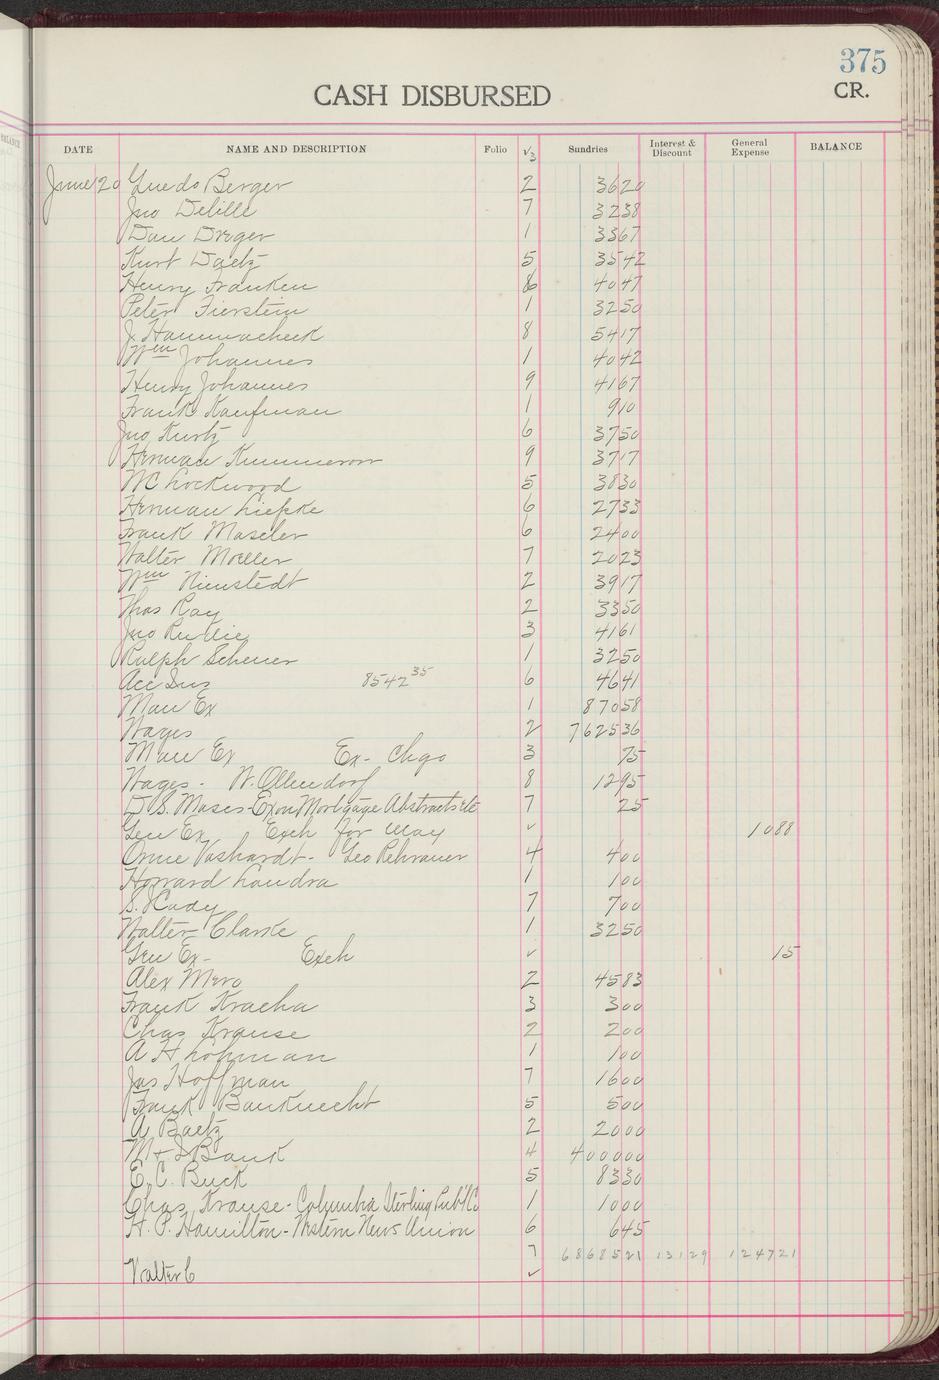 375
CASH DISBURSED
CR.
DATE NAME AND DESCRIPTION Folio √3 Sundries Interest & Discount General Expense BALANCE
June 20 Guedo Berger 2 3620
Jno Delille 7 3238
Dan Droger 1 3367
Kurt Daetz 5 3542
Henry Franken 8 4047
Peter Fierstein 1 3250
J. Hammacheck 8 5417
Wm Johannes 1 4042
Henry Johannes 9 4167
Frank Kaufman 1 910
Jno Kurtz 6 3750
Herman Kummerow 9 3717
WC Lockwood 5 3830
Herman Liepke 6 2733
Frank Maseler 6 2400
Walter Moeller 7 2023
Wm Nienstedt 2 3917
Thos Ray 2 3350
Jno 3 4161
Ralph Scheuer 1 3250
Acc Ins 8542 35 6 4641
Man Ex 1 87058
Wages 2 762536
Man Ex Ex- Chgs 3 75
Wages - W. Ollendorf 8 1295
D. S. Mases - Ex on Mortgage Abstracts etc 7 25
Gen Ex Exch for May √ 1088
Orme Vashardt - Geo Rehrauer 4 400
Howard Landra 1 100
S. J Cady 7 700
Walter Clarke 1 3250
Gen Ex - Exch √ 15
Alex Mero 2 4583
Frank Kracha 3 300
Chas Krause 2 200
A H Lohman 1 100
Jas Hoffman 7 1600
Frank Bauknecht 5 500
A Baetz 2 2000
M & I Bank 4 400000
E. C. Buck 5 8330
Chas. Krause - Columbia Sterling Publ'C 1 1000
H. P. Hamilton - Western News Union 6 645
7 6868521 13129 124721
Walter C √